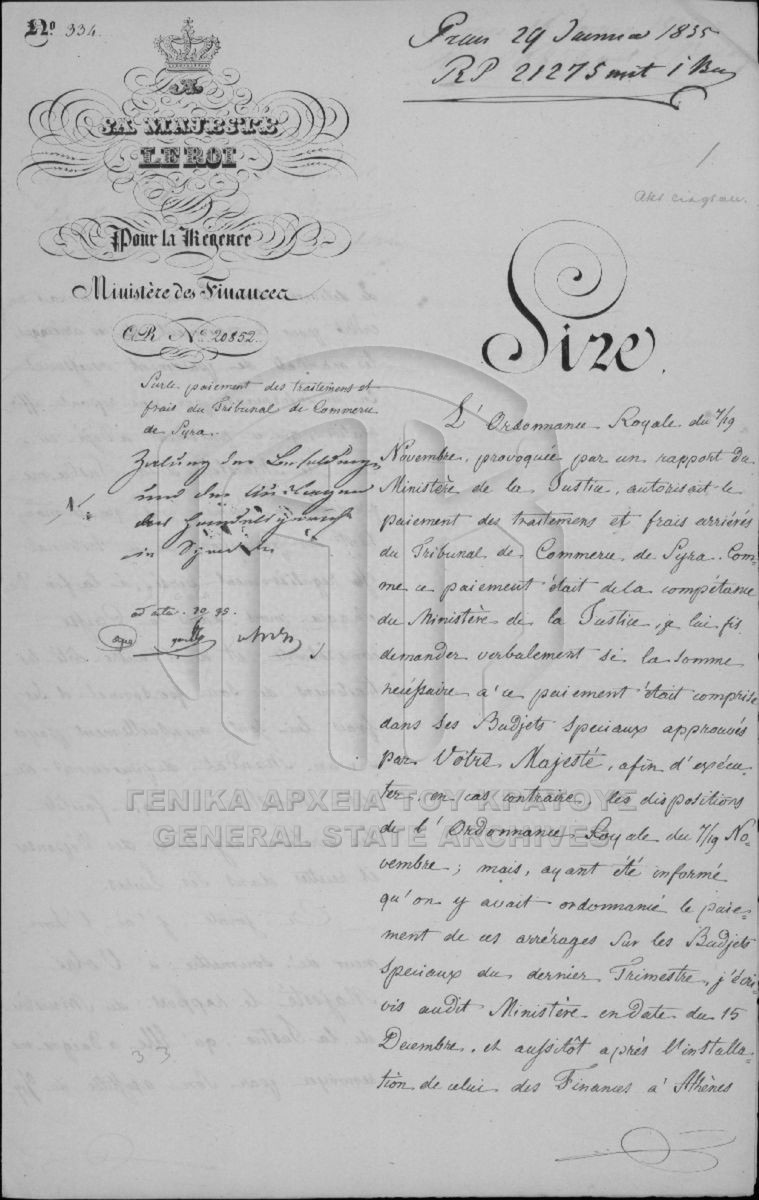 Nº 334.
A
SA MAJESTÉ
LE ROI
Pour la Régence
Ministère des Finances
Nº 20852.
Praes 29 Januar 1835
RP 21275 mit 1 Bei
Sur le paiement des traitemens et
frais du Tribunal de Commerce
de Syra.
Zalung der Besoldungen
und der Auslagen
des Handelsgerichts
in Syra
Sire.
L'Ordonnance Royale du 7/19
Novembre, provoquée par un rapport du
Ministère de la Justice, autorisait le
paiement des traitemens et frais arriérés
du Tribunal de Commerce de Syra. Com-
me ce paiement était de la compétance
du Ministère de la Justice, je lui fis
demander verbalement si la somme
nécessaire à ce paiement était comprise
dans ses Budjets speciaux approuvés
par Vôtre Majesté, afin d'exécu-
ter, en cas contraire, les dispositions
de l'Ordonnance Royale du 7/19 No-
vembre; mais, ayant été informé
qu'on y avait ordonnancé le paie-
ment de ces arrérages sur les Budjets
speciaux du dernier Trimestre, j'écri-
vis audit Ministère en date du 15
Decembre, et aussitôt après l'installa-
tion de celui des Finances à Athènes
33
ΓΕΝΙΚΑ ΑΡΧΕΙΑ ΤΟΥ ΚΡΑΤΟΥΣ
GENERAL STATE ARCHIVES